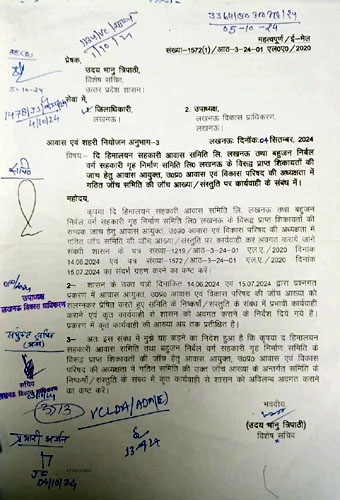 05-10-24
महत्वपूर्ण/ई-मेल
संख्या-1572(1)/आठ-3-24-01 एल०ए०/2020
प्रेषक,
उदय भानु त्रिपाठी,
विशेष सचिव,
उत्तर प्रदेश शासन।
सेवा में,
1. जिलाधिकारी,
लखनऊ।
2. उपाध्यक्ष,
लखनऊ विकास प्राधिकरण,
लखनऊ।
आवास एवं शहरी नियोजन अनुभाग-3
लखनऊ: दिनाँक: 04 सितम्बर, 2024
विषय:- दि हिमालयन सहकारी आवास समिति लि. लखनऊ तथा बहुजन निर्बल
वर्ग सहकारी गृह निर्माण समिति लि० लखनऊ के विरुद्ध प्राप्त शिकायतों की
जांच हेतु आवास आयुक्त, उ०प्र० आवास एवं विकास परिषद की अध्यक्षता में
गठित जाँच समिति की जाँच आख्या/संस्तुति पर कार्यवाही के संबंध में।
महोदय,
कृपया दि हिमालयन सहकारी आवास समिति लि. लखनऊ तथा बहुजन
निर्बल वर्ग सहकारी गृह निर्माण समिति लि० लखनऊ के विरुद्ध प्राप्त शिकायतों की
सम्यक जाँच हेतु आवास आयुक्त, उ०प्र० आवास एवं विकास परिषद की अध्यक्षता में
गठित समिति की जाँच आख्या/संस्तुति पर कार्यवाही कर अवगत कराये जाने
संबंधी शासन के पत्र संख्या-1219/आठ-3-24-01 एल.ए./2020 दिनांक
14.06.2024 एवं पत्र संख्या-1572/आठ-3-24-01 एल.ए./2020 दिनांक
15.07.2024 का संदर्भ ग्रहण करने का कष्ट करें।
2- शासन के उक्त पत्रों दिनांकित 14.06.2024 एवं 15.07.2024 द्वारा प्रश्नगत
प्रकरण में आवास आयुक्त, उ०प्र० आवास एवं विकास परिषद की जाँच आख्या को
संलग्नकर प्रेषित करते हुए समिति के निष्कर्षों/संस्तुति के संबंध में प्रभावी कार्यवाही
कराने एवं कृत कार्यवाही से शासन को अवगत कराने के निर्देश दिये गये है।
प्रकरण में कृत कार्यवाही की आख्या अब तक प्रतीक्षित है।
3- अतः इस संबंध में मुझे यह कहने का निदेश हुआ है कि कृपया द हिमालयन
सहकारी आवास समिति तथा बहुजन निर्बल वर्ग सहकारी गृह निर्माण समिति के
विरुद्ध प्राप्त शिकायतों की जाँच हेतु आवास आयुक्त, उ०प्र० आवास एवं विकास
परिषद की अध्यक्षता में गठित समिति की उक्त जाँच आख्या के अन्तर्गत समिति के
निष्कर्षों/संस्तुति के संबंध में कृत कार्यवाही से शासन को अविलम्ब अवगत कराने
का कष्ट करें।
भवदीय,
(उदय भानु त्रिपाठी)
विशेष सचिव
उपाध्यक्ष
लखनऊ विकास प्राधिकरण
सचिव
VCLDA/ADM(E)